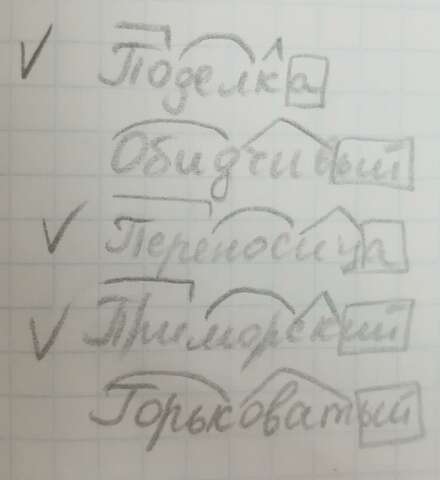 ✓ Поделка
Обидчивый
✓ Переносица
✓ Приморский
Горьковатый